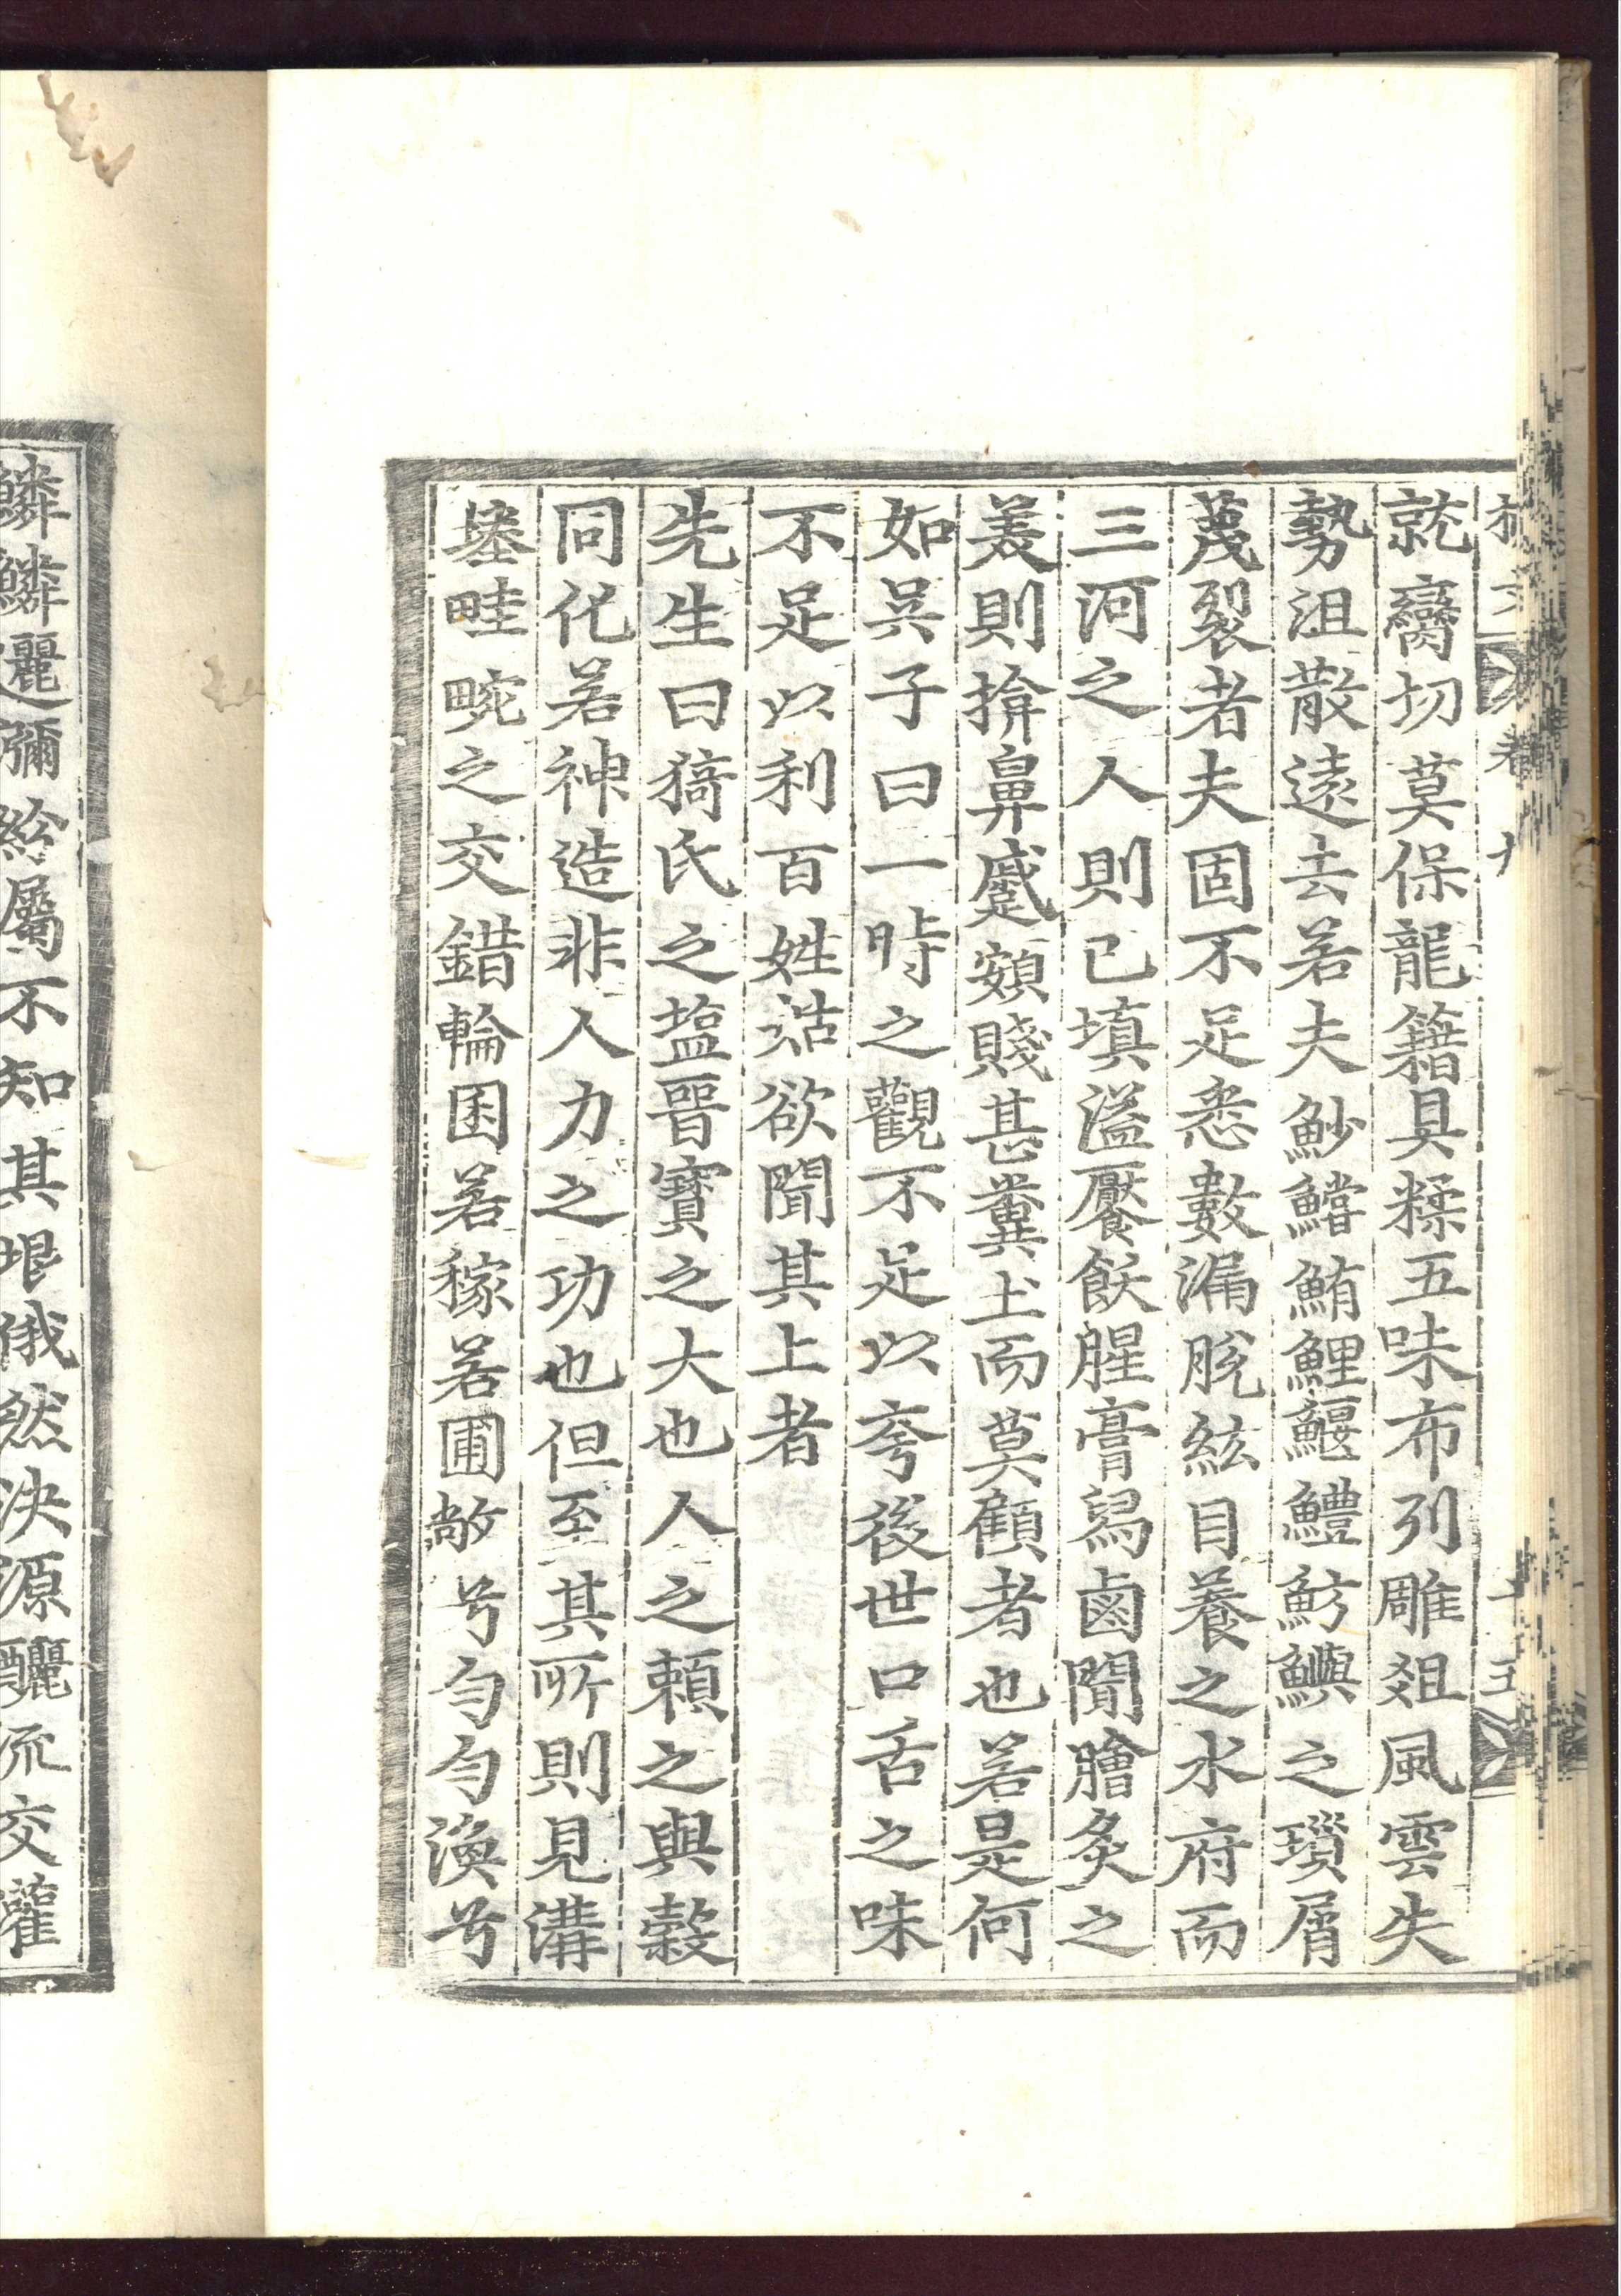 就臠切莫保龍籍具糅五味布列雕俎風雲失
勢沮散遠去若夫魦鱨鮪鯉鰋鱧魴鱮之瑣屑
蔑裂者夫固不足悉數漏脫紘目養之水府而
三河之人則已填溢饜飫腥膏舄鹵聞膾炙之
羙則揜鼻蹙頞賤甚糞土而莫顧者也若是何
如吳子曰一時之觀不足以夸後世口舌之味
不足以利百姓姑欲聞其上者
先生曰猗氏之塩晉寶之大也人之賴之與穀
同化若神造非人力之功也但至其所則見溝
塍畦畹之交錯輪囷若稼若圃敞兮勻勻渙兮
鱗鱗邐彌紛屬不知其垠俄然決源釃流交灌